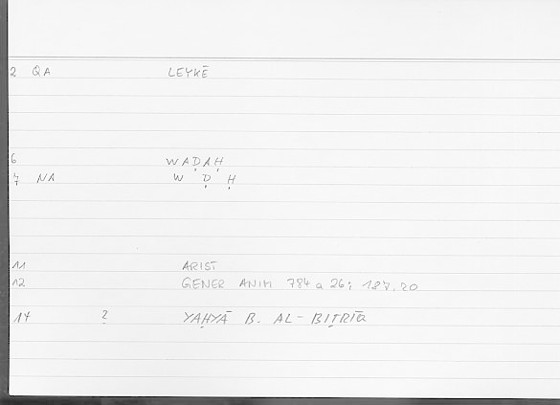 2 QA LEYKĒ
6 WAḌAḤ
7 NA W Ḍ Ḥ
11 ARIST
12 GENER ANIM 784 a 26; 187.20
17 2 YAḤYĀ B. AL-BIṬRĪQ